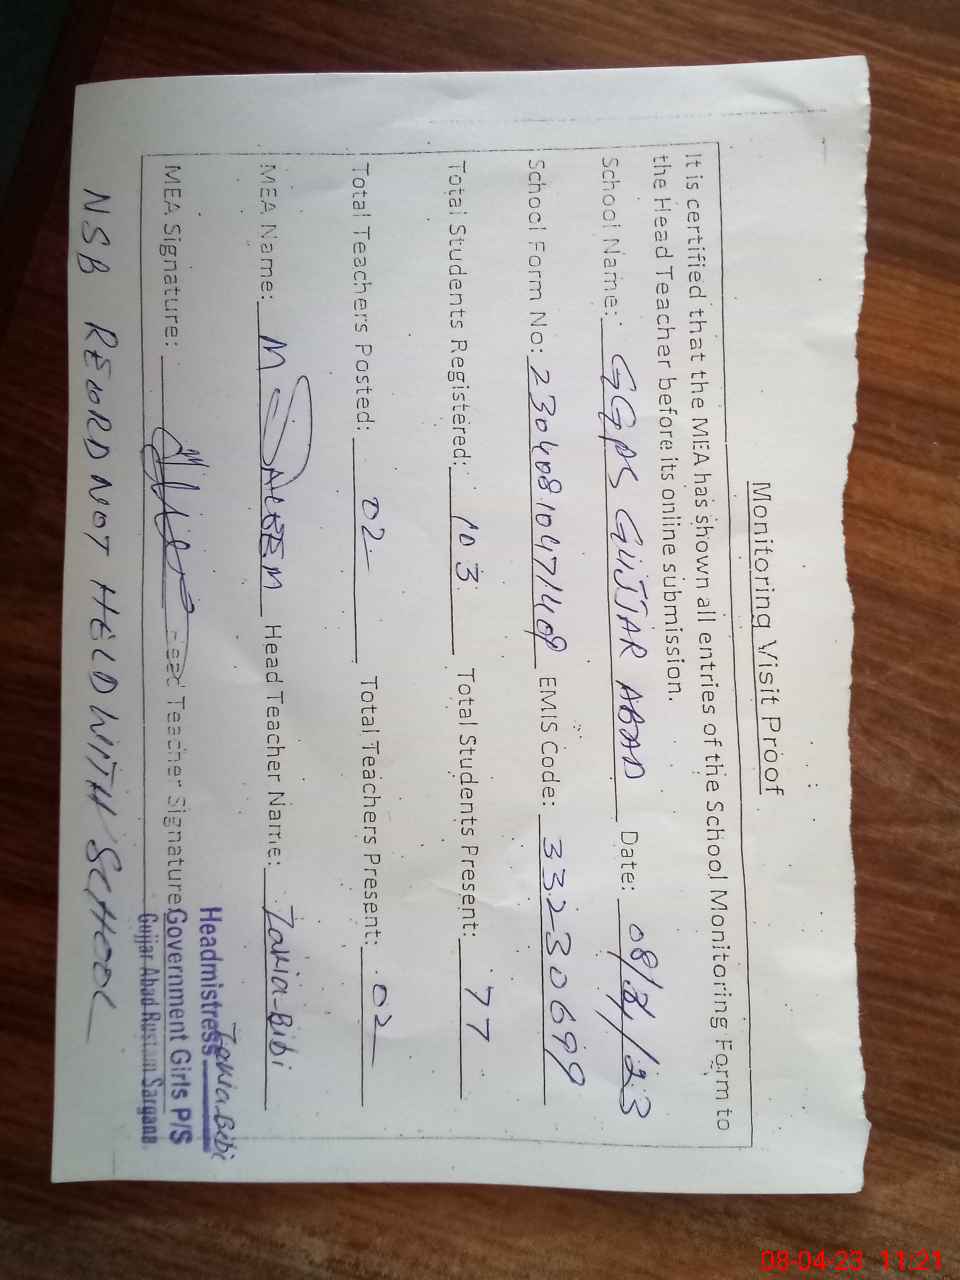 Monitoring Visit Proof
It is certified that the MEA has shown all entries of the School Monitoring Form to
the Head Teacher before its online submission.
School Name: GGPS GUJJAR ABAD Date: 08/4/23
School Form No: 23040810471409 EMIS Code: 33230699
Total Students Registered: 103 Total Students Present: 77
Total Teachers Posted: 02 Total Teachers Present: 02
MEA Name: M SALEEM Head Teacher Name: Zakia Bibi
MEA Signature: Head Teacher Signature:
Zakia Bibi
Headmistress
Government Girls P/S
Gujjar Abad Rustam Sargana
NSB RECORD NOT HELD WITH SCHOOL
08-04-23 11:21